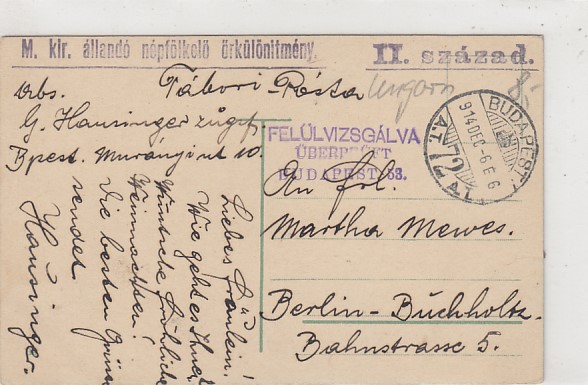 M. kir. állandó népfölkelő őrkülönítmény.
II. század.
Tábori Pósta
Ungarn
8,-
G. Hausinger zugsf.
Bpest. Murányi ut 10.
FELÜLVIZSGÁLVA
ÜBERPRÜFT
BUDAPEST. 53.
BUDAPEST 72
914 DEC -6 E 6
An Frl.
Martha Mewes.
Berlin-Buchholtz.
Bahnstrasse 5.
Liebes Fräulein!
Wie geht es Ihnen
Wünsche fröhliche
Weinnachten!
Die besten Grüsse
sendet
Hausinger.